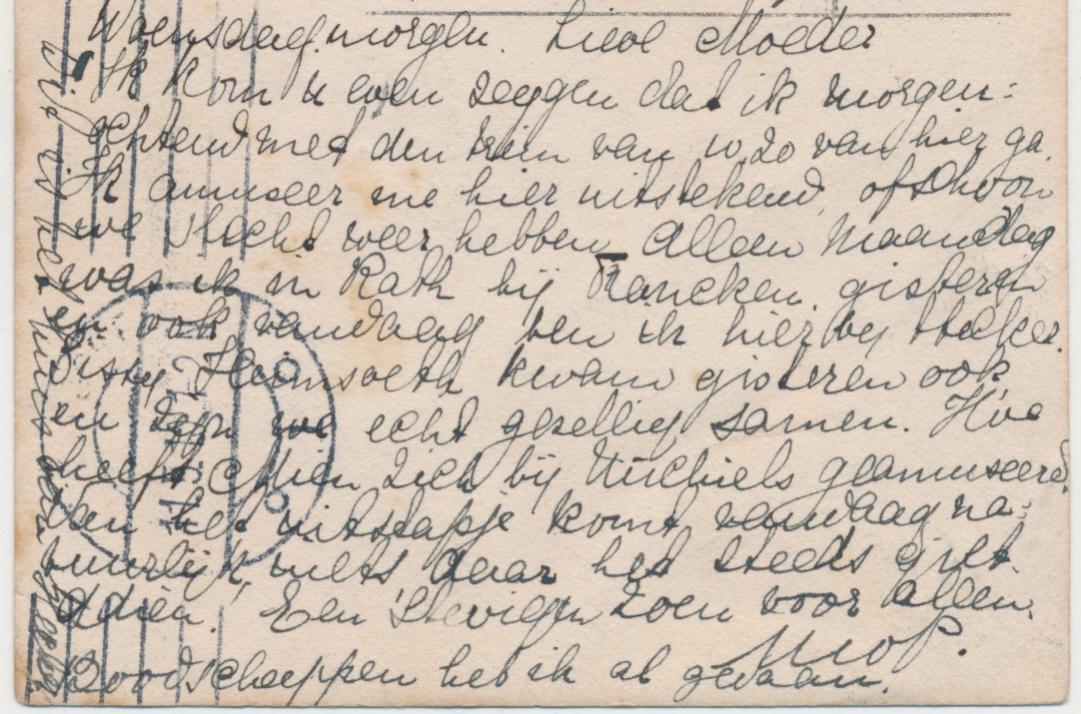 Woensdagmorgen. Lieve Moeder
Ik kom u even zeggen dat ik morgen=
ochtend met den trein van 10 20 van hier ga.
Ik amuseer me hier uitstekend, ofschoon
we slecht weer hebben. Alleen Maandag
was ik in Rath bij Rancken, gisteren
en ook vandaag ben ik hier bij
Sissy Heimsoeth kwam gisteren ook
en zijn we echt gezellig samen. Hoe
heeft Mien zich bij Michiels geamuseerd.
Van het uitstapje komt vandaag na=
tuurlijk niets daar het steeds giet.
Adieu! Een stevigen zoen voor allen.
Boodschappen heb ik al gedaan.